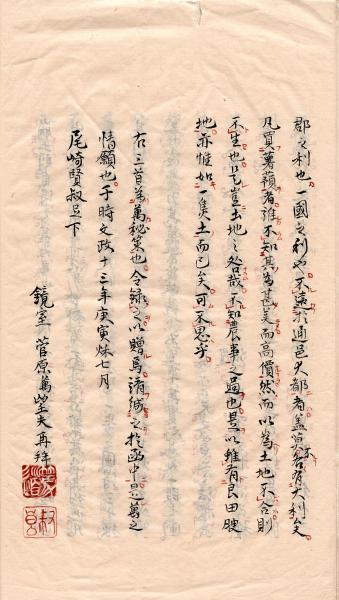 郡之利也一國之利也不遠於通邑大都者蓋莫不各有大利矣
凡買薯蕷者誰不知其為甚美而高價然而以為土地不合則
不生也是豈土地之咎哉不知農事之過也是以雖有良田腴
地亦惟如一隻土而已矣可不思乎
右三首為萬秘策也今錄之以贈焉請緘之於函中是萬之
情願也于時文政十三年庚寅秋七月
尾崎賢叔足下
鏡室 菅原萬 再拜